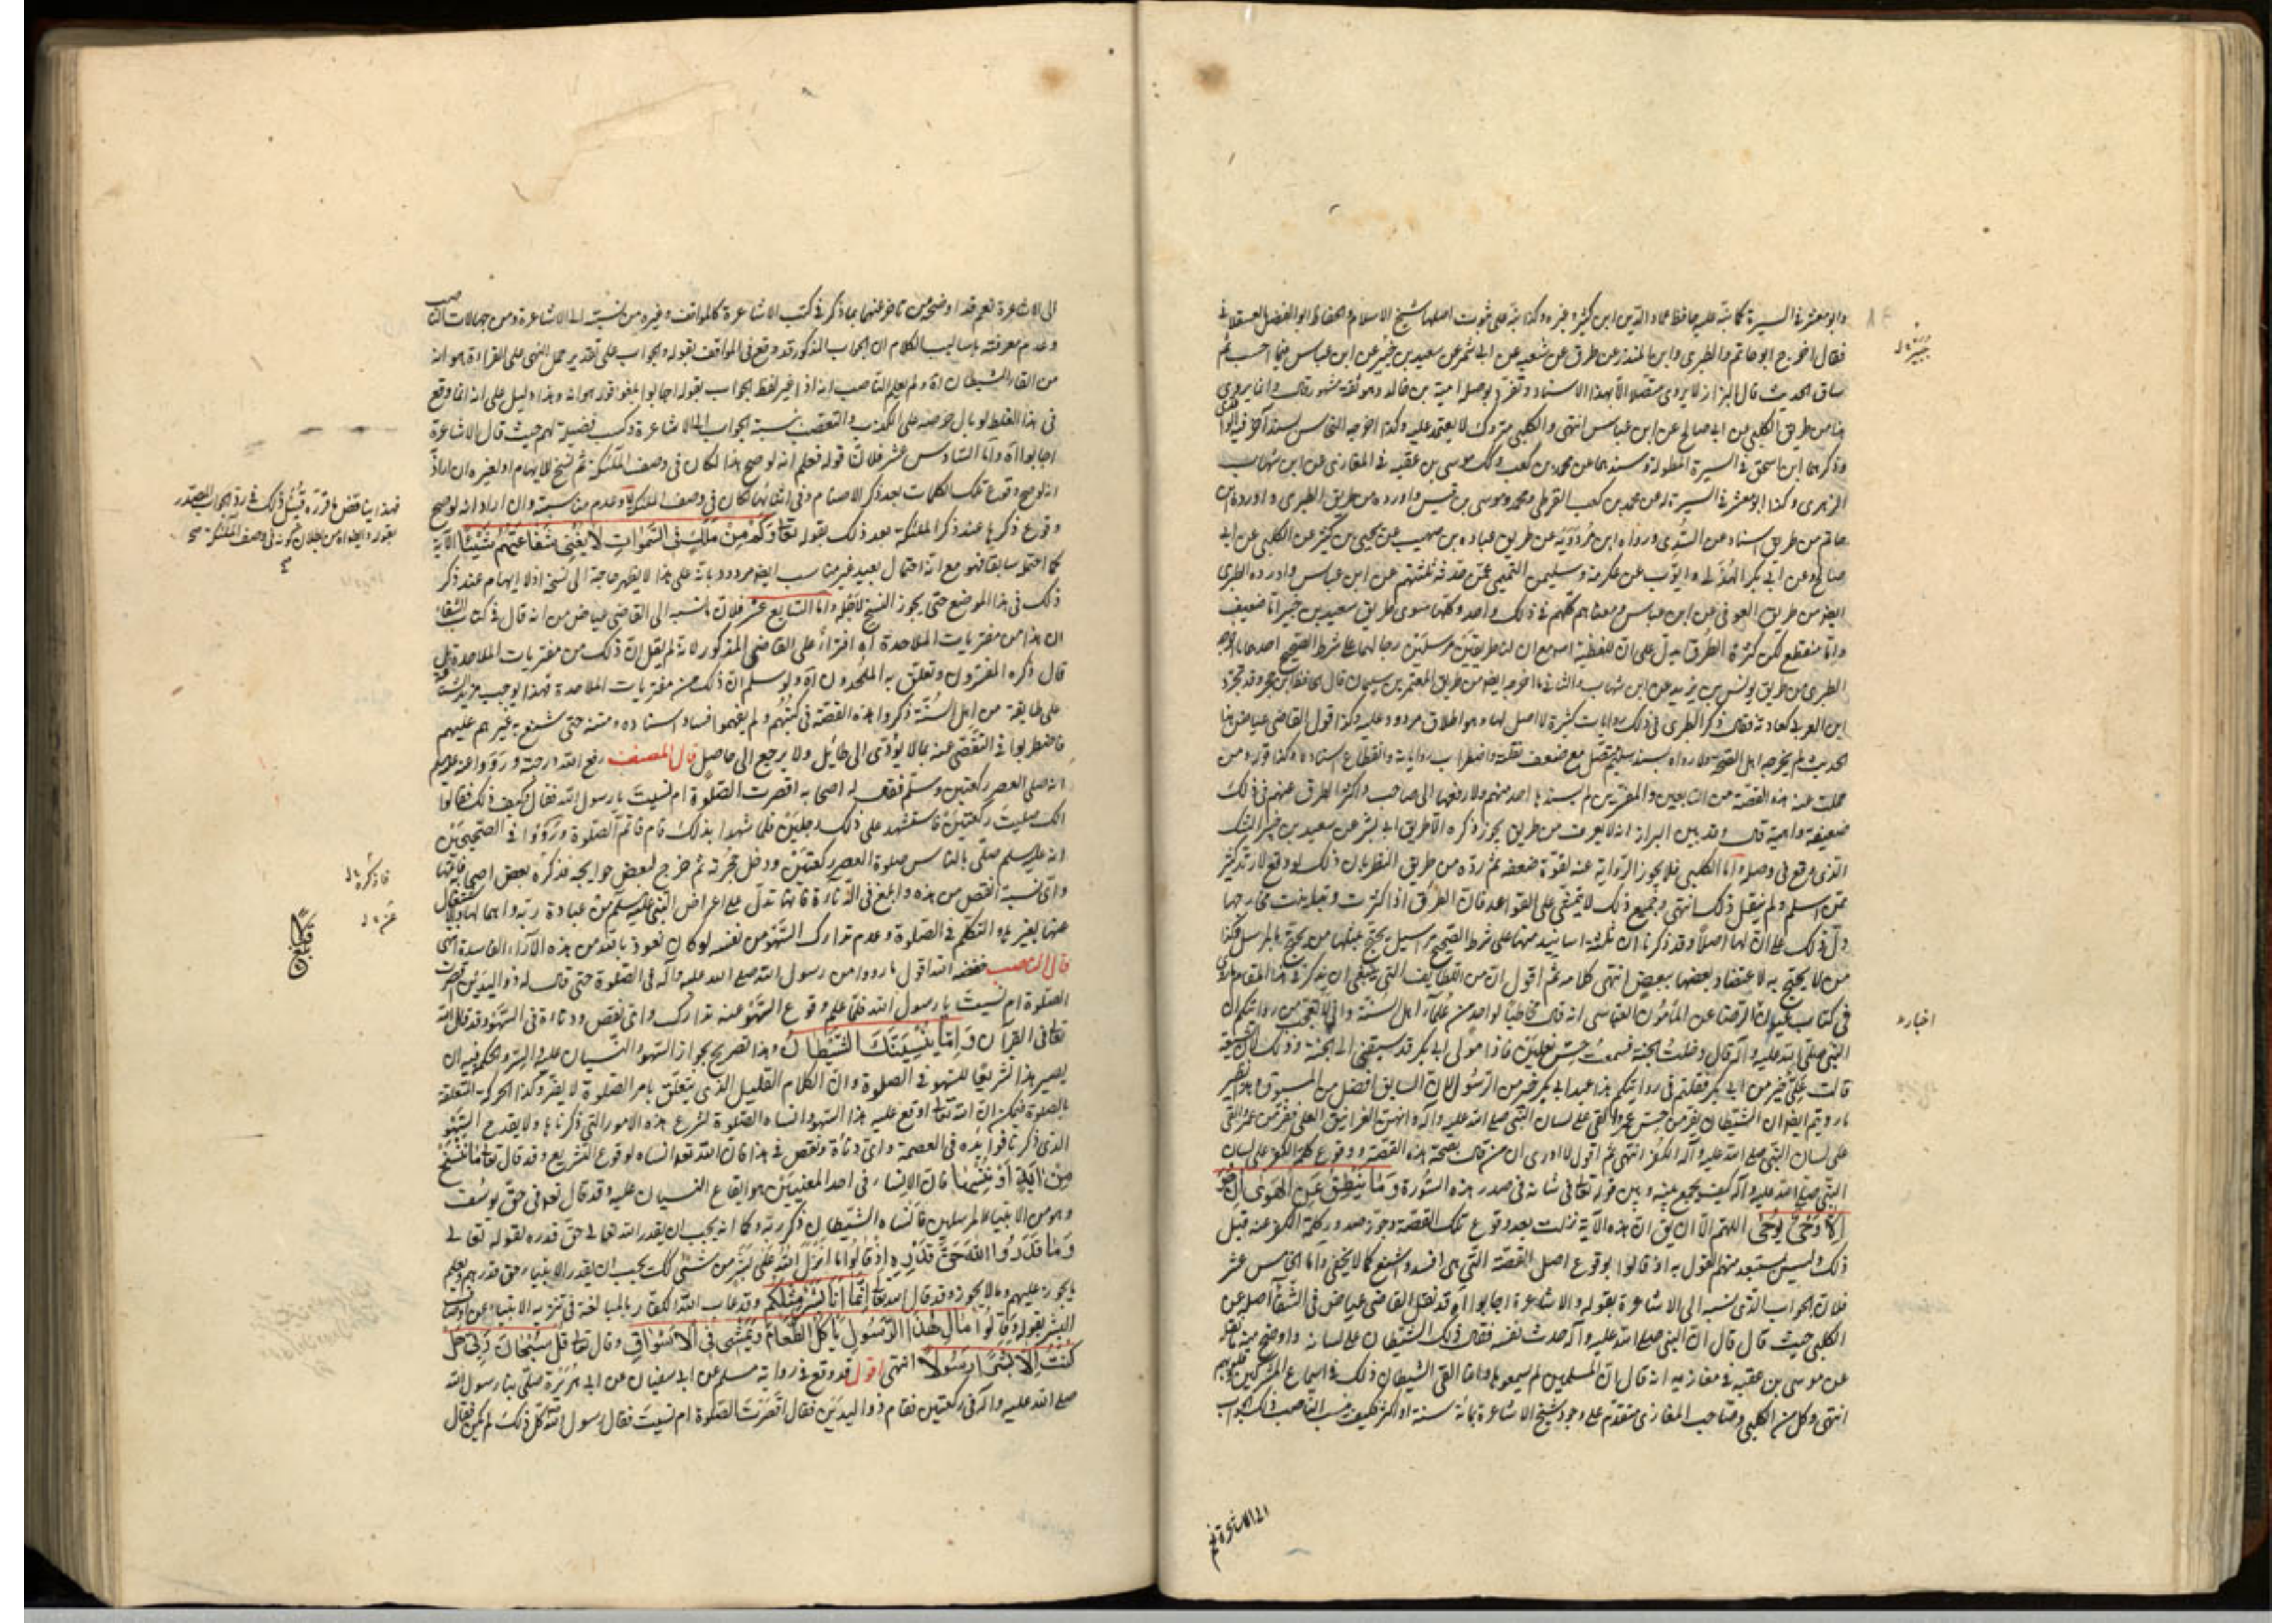 وابو معشر في السيرة كما نبه عليه حافظ عماد الدين ابن كثير وغيره وكذا نبه على ثبوت اصلها شيخ الاسلام الحفاظ ابو الفضل العسقلاني
فقال اخرج ابو حاتم والطبري وابن المنذر من طرق عن شعبة عن ابي بشر عن سعيد بن جبير عن ابن عباس فيما احسب ثم
ساق الحديث قال البزار لا يروى متصلا الا بهذا الاسناد وتفرد بوصله امية بن خالد وهو ثقة مشهور قال وانما يروى
هذا من طريق الكلبي عن ابي صالح عن ابن عباس انتهى والكلبي متروك لا يعتمد عليه وكذا اخرجه النحاس بسند آخر فيه الواقدي
وذكرها ابن اسحق في السيرة المطولة وسندها عن محمد بن كعب وكذلك موسى بن عقبة في المغازي عن ابن شهاب
الزهري وكذا ابو معشر في السيرة له عن محمد بن كعب القرظي ومحمد وموسى بن قيس واورده من طريق الطبري واورده ابن
حاتم من طريق اسناد عن السدي ورواه ابن مردويه من طريق عباد بن صهيب عن يحيى بن كثير عن الكلبي عن ابي
صالح وعن ابي بكر الهذلي وايوب عن عكرمة وسليمن التيمي عمن حدثه ثلثتهم عن ابن عباس واورده الطبري
ايضا من طريق العوفي عن ابن عباس ومعناهم كلهم في ذلك واحد وكلها سوى طريق سعيد بن جبير اما ضعيف
واما منقطع لكن كثرة الطرق تدل على ان للقصة اصلا مع ان لها طريقين مرسلين رجالهما على شرط الصحيح احدهما ما اخرجه
الطبري من طريق يونس بن يزيد عن ابن شهاب والثاني ما اخرجه ايضا من طريق المعتمر بن سليمان قال الحافظ ابن حجر وقد تجرّد
ابن العربي كعادته فقال ذكر الطبري في ذلك روايات كثيرة لا اصل لها وهو اطلاق مردود عليه وكذا قول القاضي عياض هذا
الحديث لم يخرجه اهل الصحة ولا رواه بسند سليم متصل مع ضعف نقلته واضطراب رواياته وانقطاع اسناده وكذا قوله ومن
حملت عنه هذه القصة من التابعين والمفسرين لم يسندها احد منهم ولا رفعها الى صاحب واكثر الطرق عنهم في ذلك
ضعيفة واهية قال وقد بين البزار انه لا يعرف من طريق يجوز ذكره الا طريق ابي بشر عن سعيد بن جبير مع الشك
الذي وقع في وصله واما الكلبي فلا يجوز الرواية عنه لقوة ضعفه ثم رده من طريق النظر بان ذلك لو وقع لارتد كثير
ممن اسلم ولم ينقل ذلك انتهى وجميع ذلك لا يتمشى على القواعد فان الطرق اذا كثرت وتباينت مخارجها
دل ذلك على ان لها اصلا وقد ذكرنا ان ثلثة اسانيد منها على شرط الصحيح مراسيل يحتج بمثلها من يحتج بالمرسل وكذا
من لا يحتج به لاعتضاد بعضها ببعض انتهى كلامه ثم اقول ان من اللطايف التي ينبغي ان يذكر في هذا المقام ما روي
في كتاب عيون الرضا عن المأمون العباسي انه قال مخاطبا لواحد من علماء اهل السنة واني لا تعجب من روايتكم ان
النبي صلى الله عليه وآله قال دخلت الجنة فسمعت خشن نعلين فاذا مولى ابي بكر قد سبقني الى الجنة وذلك لان الشيعة
قالت علي خير من ابي بكر فقلتم في روايتكم هذا عبد ابي بكر خير من الرسول لان السابق افضل من المسبوق وهذا نظير
ما رويتم ايضا ان الشيطان يفر من حس عمر والقى على لسان النبي صلى الله عليه وآله وانهن الغرانيق العلى ففر من عمر والقى
على لسان النبي صلى الله عليه وآله الكفر انتهى ثم اقول لا ادري ان من قال بصحة هذه القصة ووقوع كلمة الكفر على لسان
النبي صلى الله عليه وآله كيف يجمع بينه وبين قوله تعالى في شانه في صدر هذه السورة وَمَا يَنْطِقُ عَنِ الْهَوَى اِنْ هُوَ
اِلَّا وَحْيٌ يُوحَى اللهم الا ان يق ان هذه الآية نزلت بعد وقوع تلك القصة وجوز صدور كلمة الكفر عنه قبل
ذلك وليس يستبعد منهم القول به اذ قالوا بوقوع اصل القصة التي هي افسد واشنع كما لا يخفى واما الخامس عشر
فلان الجواب الذي نسبه الى الاشاعرة بقوله والاشاعرة اجابوا اه قد نقل القاضي عياض في الشفا اصله عن
الكلبي حيث قال قال ان النبي صلى الله عليه وآله حدث نفسه فقال ذلك الشيطان على لسانه واوضح منه ما نقله
عن موسى بن عقبة في مغازيه انه قال ان المسلمين لم يسمعوها وانما القى الشيطان ذلك في اسماع المشركين وقلوبهم
انتهى وكل من الكلبي وصاحب المغازي متقدم على وجود شيخ الاشاعرة بمائة سنة او اكثر فكيف ينسب الناصب ذلك الجواب
الى الاشاعرة نعم
جبير
اخبار
الى الاشاعرة نعم قد اوضح من تاخر عنهما بما ذكر في كتب الاشاعرة كالمواقف وغيره من نسبته الى الاشاعرة ومن جهالات الناصب
وعدم معرفته باساليب الكلام ان الجواب المذكور قد وقع في المواقف بقوله والجواب على تقدير حمل التمني على القراءة هو انه
من القاء الشيطان اه ولم يعلم الناصب انه اذا غير لفظ الجواب بقوله اجابوا يلغو قوله هو انه وهذا دليل على انه انما وقع
في هذا الغلط لوبال حرصه على الكذب والتعصب بنسبة الجواب الى الاشاعرة وكسب فضيلة لهم حيث قال الاشاعرة
اجابوا اه واما السادس عشر فلان قوله فعلم انه لو صح هذا لكان في وصف الملئكة ثم نسخ للايهام او لغيره ان اراد
انه لو صح وقوع تلك الكلمات بعد ذكر الاصنام وفي اثنائها لكان في وصف الملئكة وعدم مناسبته وان اراد انه لو صح
وقوع ذكرها عند ذكر الملئكة بعد ذلك بقوله تعالى وَكَمْ مِنْ مَلَكٍ فِي السَّمَوَاتِ لَا يُغْنِي شَفَاعَتُهُمْ شَيْئًا الآية
كما احتمله سابقا فهو مع انه احتمال بعيد غير مناسب ايضا مردود بانه على هذا لا يظهر حاجة الى نسخه اذ لا ايهام عند ذكر
ذلك في هذا الموضع حتى يجوز النسخ لاجله واما السابع عشر فلان ما نسبه الى القاضي عياض من انه قال في كتاب الشفاء
ان هذا من مفتريات الملاحدة اه افتراء على القاضي المذكور لانه لم يقل ان ذلك من مفتريات الملاحدة بل
قال ذكره المفسرون وتعلق به الملحدون اه ولو سلم ان ذلك من مفتريات الملاحدة فهذا يوجب مزيد الشناعة
على طايفة من اهل السنة ذكروا هذه القصة في كتبهم ولم يفهموا فساد اسناده ومتنه حتى شنع به غيرهم عليهم
فاضطربوا في التفصي عنه بما لا يؤدي الى طائل ولا يرجع الى حاصل قال المصنف رفع الله درجته ورووا عنه عليه السلام
انه صلى العصر ركعتين وسلم فقال له اصحابه اقصرت الصلوة ام نسيت يا رسول الله فقال كيف ذلك فقالوا
انك صليت ركعتين فاستشهد على ذلك رجلين فلما شهدا بذلك قام فاتم الصلوة ورووا في الصحيحين
انه عليه السلم صلى بالناس صلوة العصر ركعتين ودخل حجرته ثم خرج لبعض حوايجه فذكره بعض اصحابه فاتمها
واي نسبة انقص من هذه وابلغ في الدناءة فانها تدل على اعراض النبي عليه السلم من عبادة ربه واهمالها والاشتغال
عنها بغيرها والتكلم في الصلوة وعدم تدارك السهو من نفسه لو كان نعوذ بالله من هذه الآراء الفاسدة انتهى
قال الناصب خفضه الله اقول ما رووا من رسول الله صلى الله عليه وآله في الصلوة حتى قال له ذو اليدين اقصرت
الصلوة ام نسيت يا رسول الله فلما علم وقوع السهو عنه تدارك واي نقص ودناءة في السهو وقد قال الله
تعالى في القرآن وَاِمَّا يُنْسِيَنَّكَ الشَّيْطَانُ وهذا تصريح بجواز السهو والنسيان عليه والسر والحكمة فيه ان
يصير هذا تشريعا للسهو في الصلوة وان الكلام القليل الذي يتعلق بامر الصلوة لا يضر وكذا الحركة المتعلقة
بالصلوة فيمكن ان الله تعالى اوقع عليه هذا السهو وانساه الصلوة لشرع هذه الامور التي ذكرناها ولا يقدح السهو
الذي ذكرنا فوايده في العصمة واي دناءة ونقص في هذا فان الله تعالى انساه لوقوع التشريع وقد قال تعالى مَا نَنْسَخْ
مِنْ آيَةٍ اَوْ نُنْسِهَا فان الانساء في احد المعنيين هو ايقاع النسيان عليه وقد قال تعالى في حق يوسف
وهو من الانبياء المرسلين فانساه الشيطان ذكر ربه وكما انه يجب ان يقدر الله تعالى حق قدره لقوله تعالى
وَمَا قَدَرُوا اللهَ حَقَّ قَدْرِهِ اِذْ قَالُوا مَا اَنْزَلَ اللهُ عَلَى بَشَرٍ مِنْ شَيْءٍ كذلك يجب ان يقدر الانبياء حق قدرهم ويعلم
ما يجوز عليهم وما لا يجوز وقد قال الله تعالى اِنَّمَا اَنَا بَشَرٌ مِثْلُكُمْ وقد عاب الله الكفار بالمبالغة في تنزيه الانبياء عن اوصاف
البشر بقوله وَقَالُوا مَالِ هَذَا الرَّسُولِ يَاْكُلُ الطَّعَامَ وَيَمْشِي فِي الْاَسْوَاقِ وقال تعالى قُلْ سُبْحَانَ رَبِّي هَلْ
كُنْتُ اِلَّا بَشَرًا رَسُولًا انتهى اقول قد وقع في رواية مسلم عن ابي سفيان عن ابي هريرة صلى بنا رسول الله
صلى الله عليه وآله في ركعتين فقام ذو اليدين فقال اقصرت الصلوة ام نسيت فقال رسول الله كل ذلك لم يكن فقال
فهذا يناقض ما قرره قبيل ذلك في رد الجواب المصدر
بقوله وايضا من بطلان كونه في وصف الملئكة صح
فاذكره